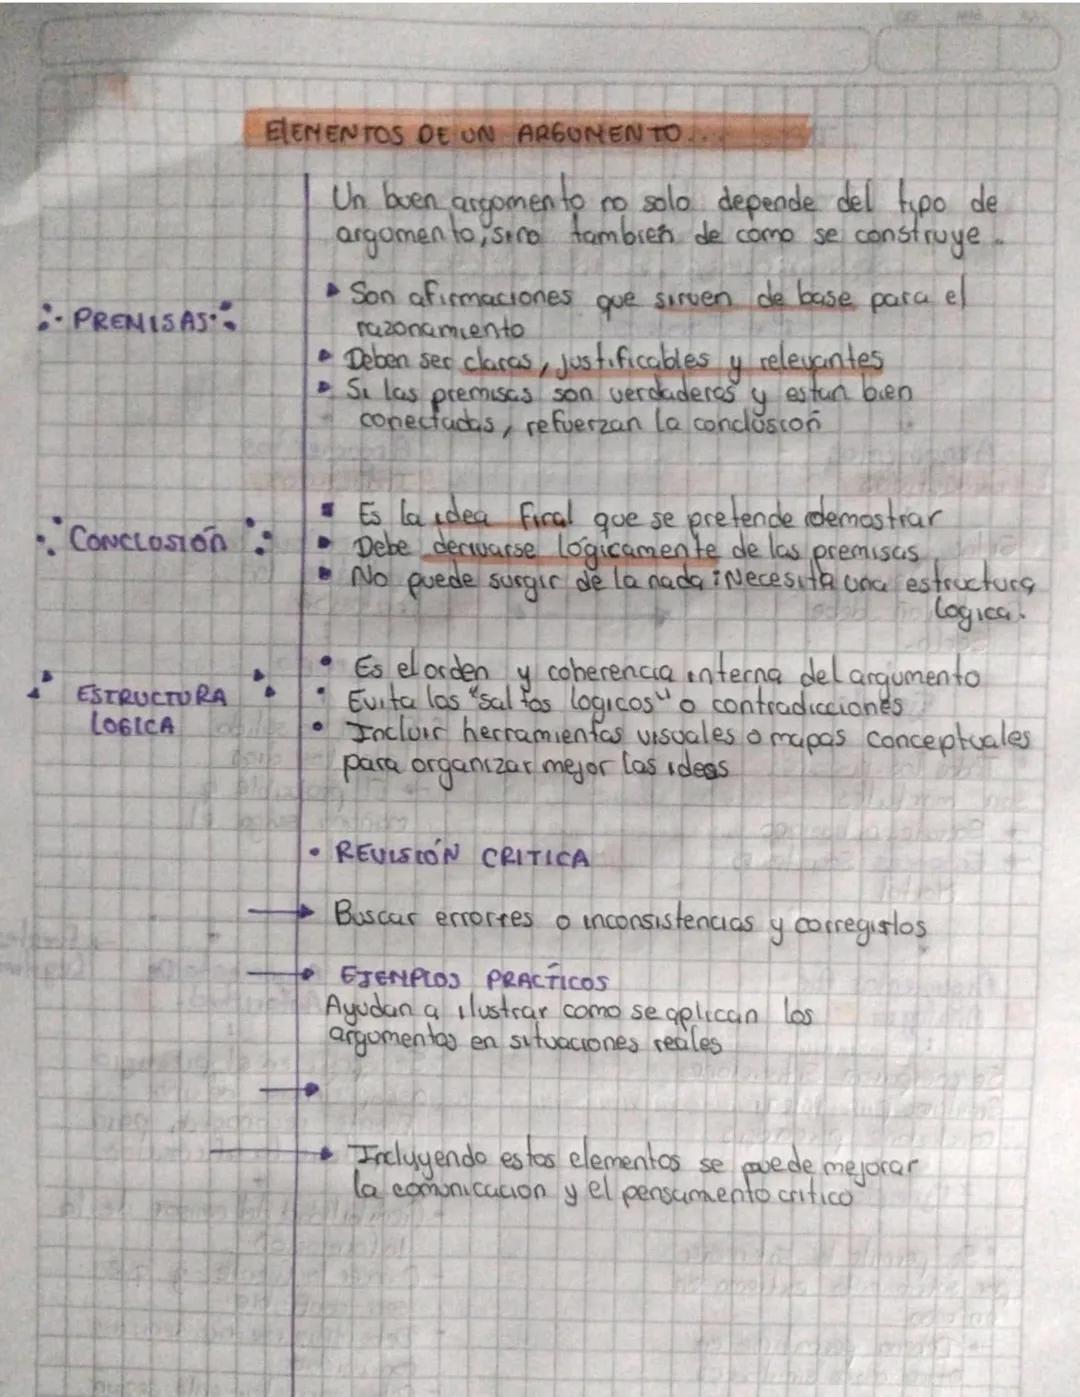 ElEMENTOS DE UN ARGUMENTO...
Un buen argomento no solo depende del tipo de
argomento, sino tambien de como se construye.
PREMISAS
Son afirmaciones que sirven de base para el
razonamiento
Deben ser claras, justificables y relevantes
Si las premisas son verdaderas y estan bien
conectadas, refuerzan la conclusion
CONCLUSIÓN
Es la idea final que se pretende demostrar
Debe derivarse lógicamente de las premisas
No puede surgir de la nada ; Necesita una estructura
logica.
ESTRUCTURA
LOGICA
Es el orden y coherencia interna del argumento
Evita los "saltos logicos" o contradicciones
Incluir herramientas visuales o mapas conceptuales
para organizar mejor las ideas
REVISIÓN CRITICA
Buscar errorres o inconsistencias y corregirlos
EJEMPLOS PRACTICOS
Ayudan a ilustrar como se aplican los
argumentos en situaciones reales
Incluyendo estos elementos se puede mejorar
la comunicacion y el pensamiento critico